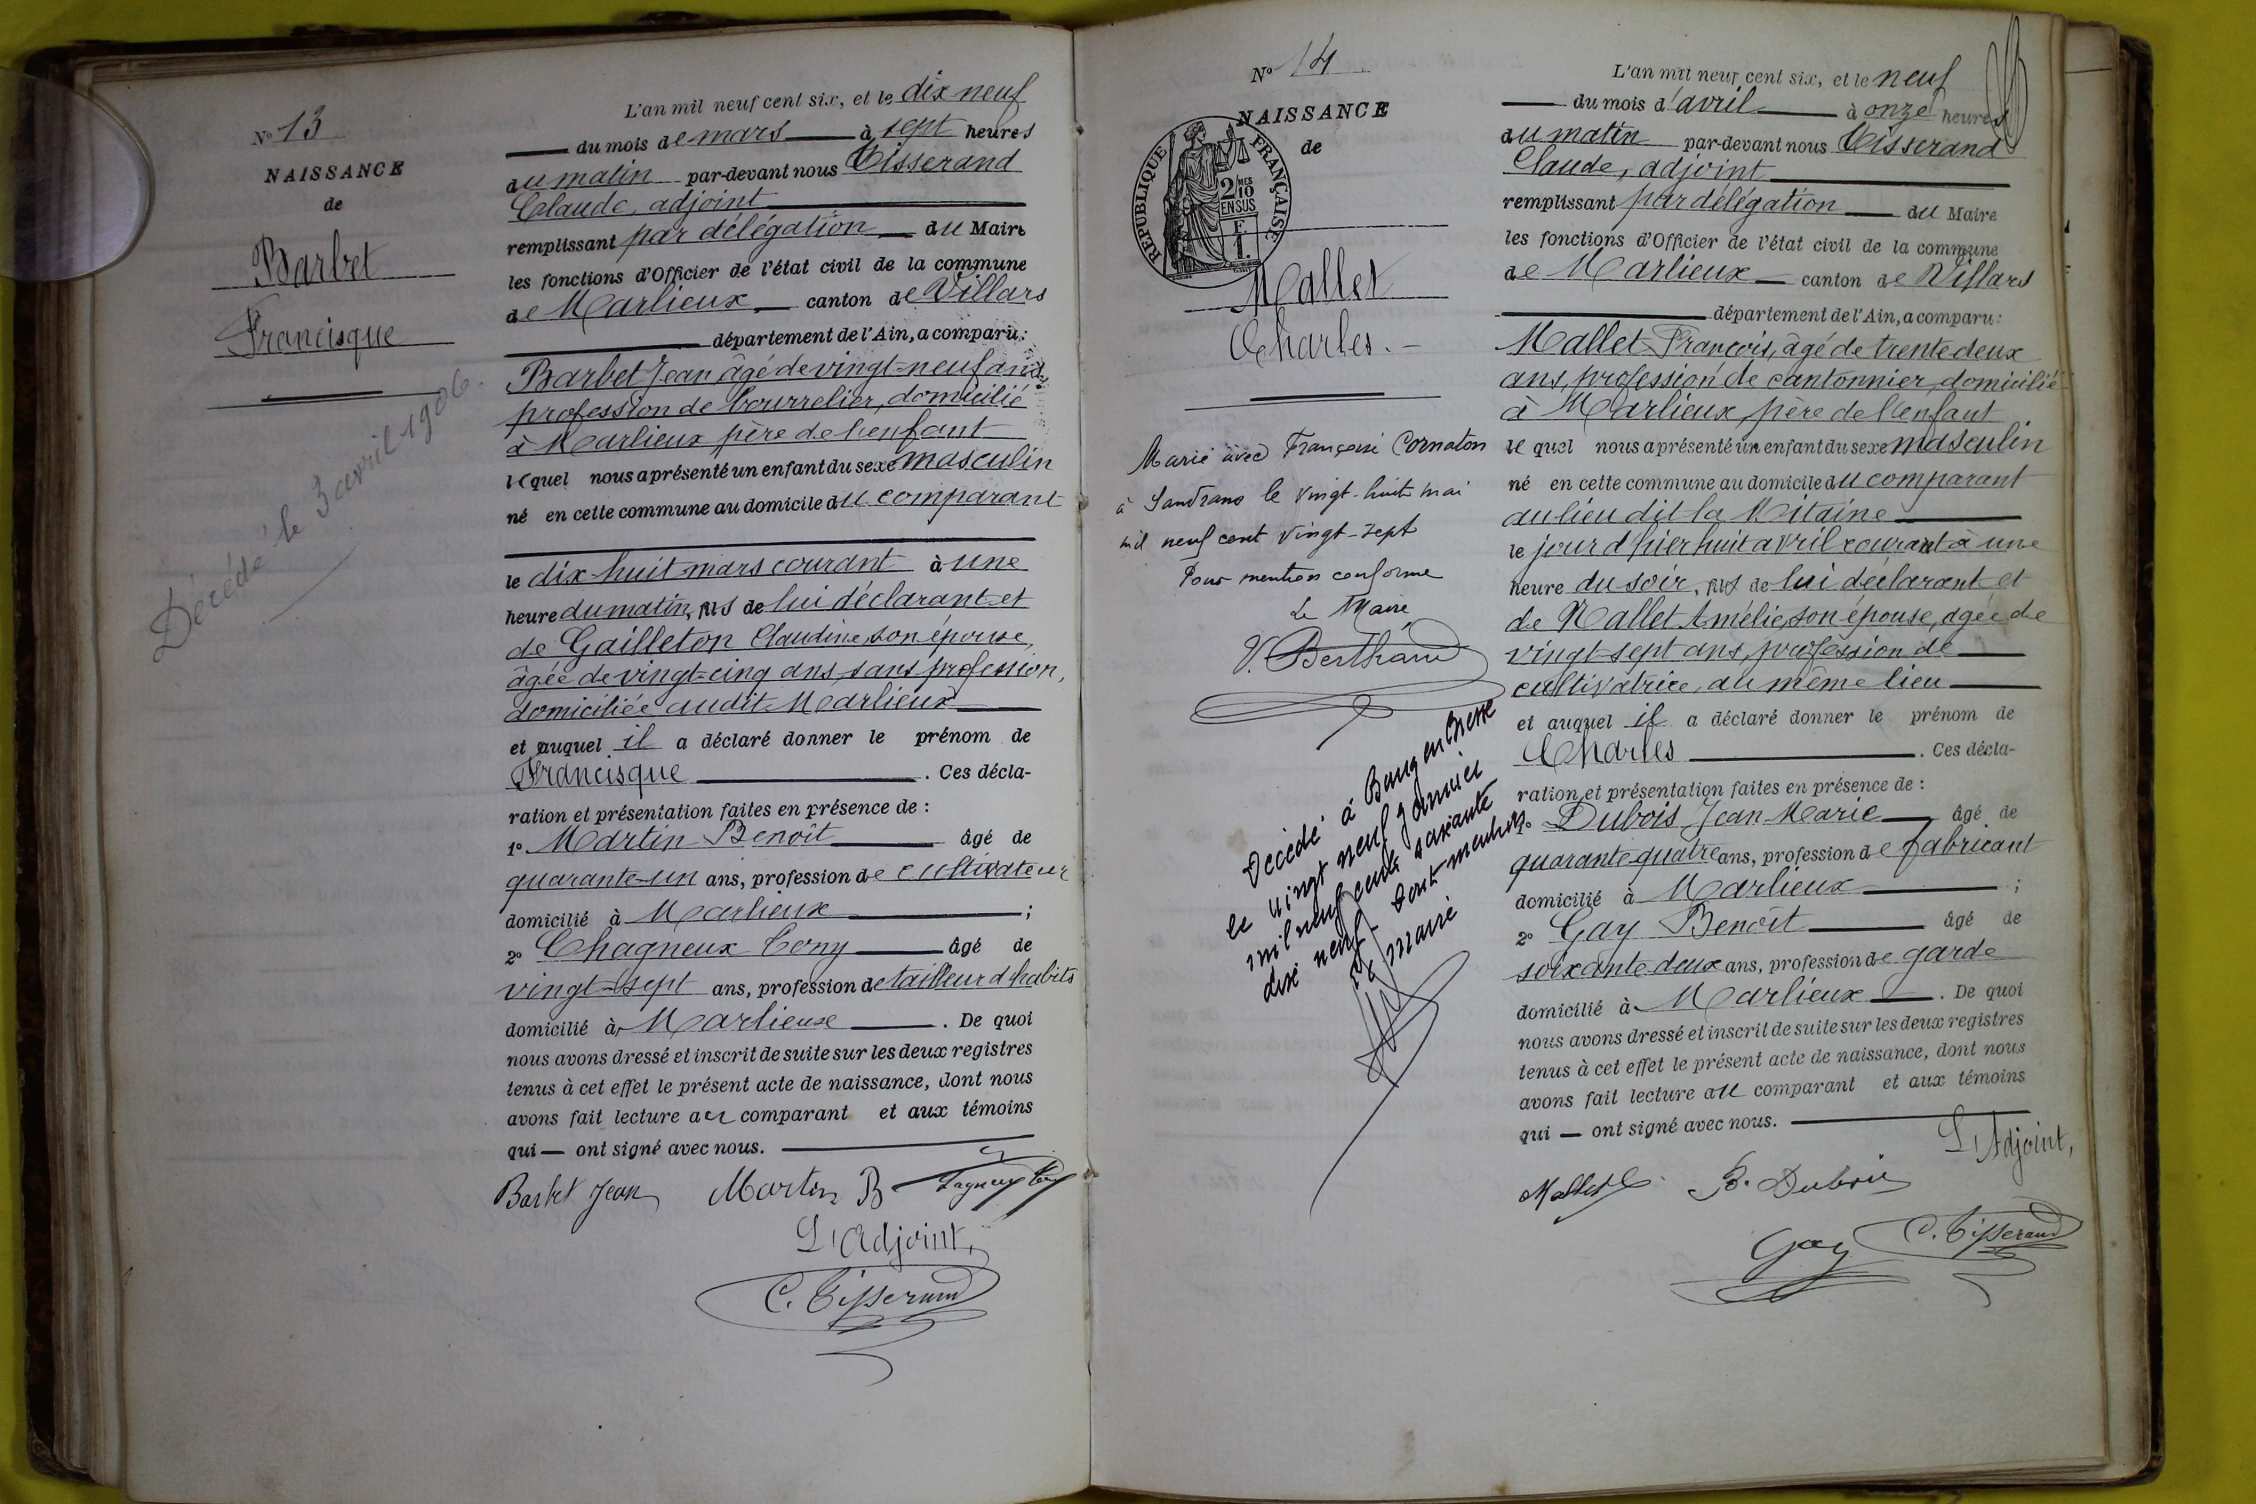 N° 13
NAISSANCE
de
Barbet
Francisque
Décédé le 3 avril 1906.
L'an mil neuf cent six, et le dix neuf
du mois de mars à sept heures
du matin par-devant nous Tisserand
Claude, adjoint
remplissant par délégation du Maire
les fonctions d'Officier de l'état civil de la commune
de Marlieux canton de Villars
département de l'Ain, a comparu:
Barbet Jean âgé de vingt-neuf ans,
profession de bourrelier, domicilié
à Marlieux père de l'enfant
lequel nous a présenté un enfant du sexe masculin
né en cette commune au domicile du comparant
le dix-huit mars courant à une
heure du matin, fils de lui déclarant et
de Gailleton Claudine son épouse,
âgée de vingt-cinq ans, sans profession,
domiciliée audit Marlieux
et auquel il a déclaré donner le prénom de
Francisque. Ces décla-
ration et présentation faites en présence de :
1° Martin Benoît âgé de
quarante-un ans, profession de cultivateur
domicilié à Marlieux ;
2° Chagneux Tony âgé de
vingt-sept ans, profession de tailleur d'habits
domicilié à Marlieux. De quoi
nous avons dressé et inscrit de suite sur les deux registres
tenus à cet effet le présent acte de naissance, dont nous
avons fait lecture au comparant et aux témoins
qui — ont signé avec nous.
Barbet Jean Martin B
L'Adjoint,
C. Tisserand
N° 14
NAISSANCE
de
REPUBLIQUE FRANÇAISE
2/10 MES
EN SUS
F.
1.
Mallet
Charles.
Marié avec Françoise Cornaton
à Sandrans le vingt-huit mai
mil neuf cent vingt-sept
Pour mention conforme
Le Maire
V. Berthand
Décédé à Bourg en Bresse
le vingt neuf janvier
mil neuf cent soixante
dix neuf. Dont mention
Le Maire
L'an mil neuf cent six, et le neuf
du mois d'avril à onze heures
du matin par-devant nous Tisserand
Claude, adjoint
remplissant par délégation du Maire
les fonctions d'Officier de l'état civil de la commune
de Marlieux canton de Villars
département de l'Ain, a comparu:
Mallet François, âgé de trente deux
ans, profession de cantonnier, domicilié
à Marlieux, père de l'enfant
lequel nous a présenté un enfant du sexe masculin
né en cette commune au domicile du comparant
au lieu dit la Mitaine
le jour d'hier huit avril courant à une
heure du soir, fils de lui déclarant et
de Mallet Amélie, son épouse, agée de
vingt-sept ans, profession de
cultivatrice, au même lieu
et auquel il a déclaré donner le prénom de
Charles. Ces décla-
ration et présentation faites en présence de :
1° Dubois Jean-Marie âgé de
quarante-quatre ans, profession de fabricant
domicilié à Marlieux ;
2° Gay Benoît âgé de
soixante deux ans, profession de garde
domicilié à Marlieux. De quoi
nous avons dressé et inscrit de suite sur les deux registres
tenus à cet effet le présent acte de naissance, dont nous
avons fait lecture au comparant et aux témoins
qui — ont signé avec nous.
L'Adjoint,
Mallet Dubois
Gay C. Tisserand